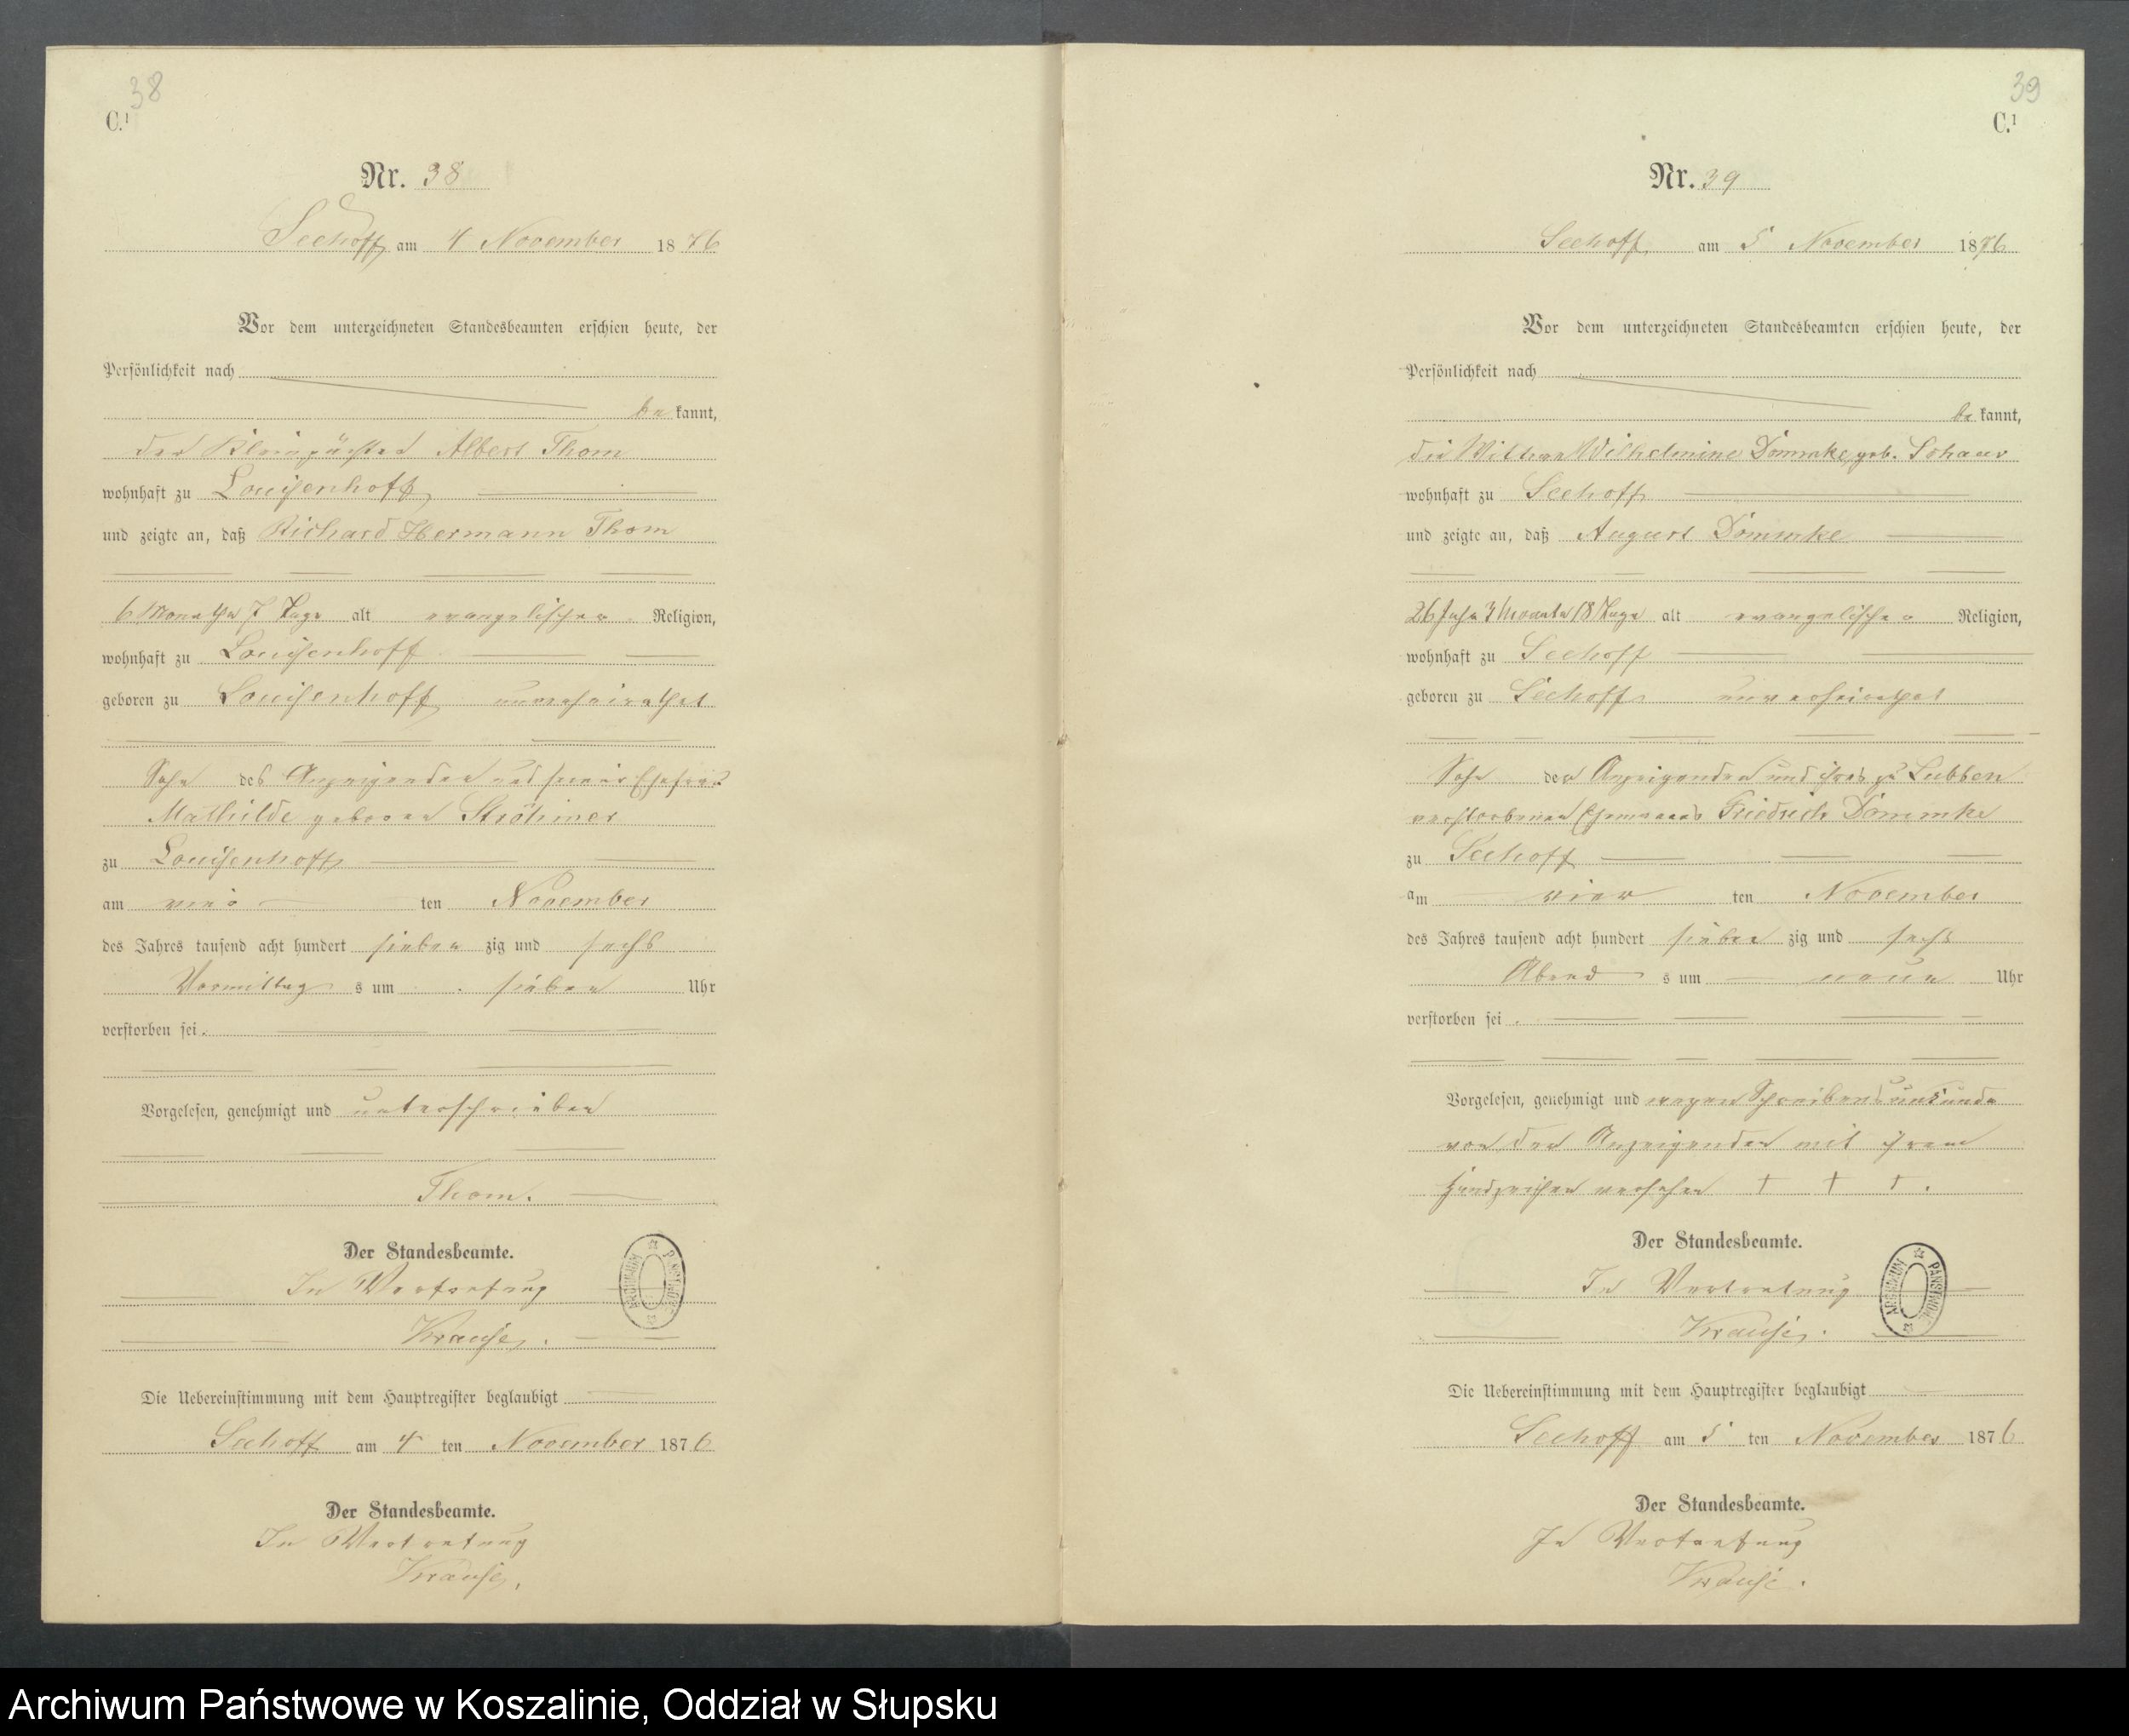 38
C.1
Nr. 38
Seehoff am 4 November 1876
Vor dem unterzeichneten Standesbeamten erschien heute, der
Persönlichkeit nach
be kannt,
der Kleinpächter Albert Thom
wohnhaft zu Louisenhoff
und zeigte an, daß Richard Hermann Thom
6 Monathe 7 Tage alt evangelischer Religion,
wohnhaft zu Louisenhoff
geboren zu Louisenhoff unverheirathet
Sohn des Anzeigenden und seiner Ehefrau
Mathilde geboren
zu Louisenhoff
am vier ten November
des Jahres tausend acht hundert sieben zig und sechs
Vormittag s um sieben Uhr
verstorben sei.
Vorgelesen, genehmigt und unterschrieben
Thom.
Der Standesbeamte.
In Vertretung
Krause.
Die Uebereinstimmung mit dem Hauptregister beglaubigt
Seehoff am 4 ten November 1876
Der Standesbeamte.
In Vertretung
Krause.
39
C.1
Nr. 39
Seehoff am 5 November 1876
Vor dem unterzeichneten Standesbeamten erschien heute, der
Persönlichkeit nach
be kannt,
die Wittwe Wilhelmine Dommke geb.
wohnhaft zu Seehoff
und zeigte an, daß August Dommke
26 Jahr 3 Monate 18 Tage alt evangelischer Religion,
wohnhaft zu Seehoff
geboren zu Seehoff unverheirathet
Sohn der Anzeigenden und ihres zu Lubben
verstorbenen Ehemannes Friedrich Dommke
zu Seehoff
am vier ten November
des Jahres tausend acht hundert sieben zig und sechs
Abend s um neun Uhr
verstorben sei.
Vorgelesen, genehmigt und wegen Schreibensunkunde
von der Anzeigenden mit ihrem
Handzeichen versehen † † †.
Der Standesbeamte.
In Vertretung
Krause.
ARCHIWUM PAŃSTWOWE
Die Uebereinstimmung mit dem Hauptregister beglaubigt
Seehoff am 5 ten November 1876
Der Standesbeamte.
In Vertretung
Krause.
Archiwum Państwowe w Koszalinie, Oddział w Słupsku